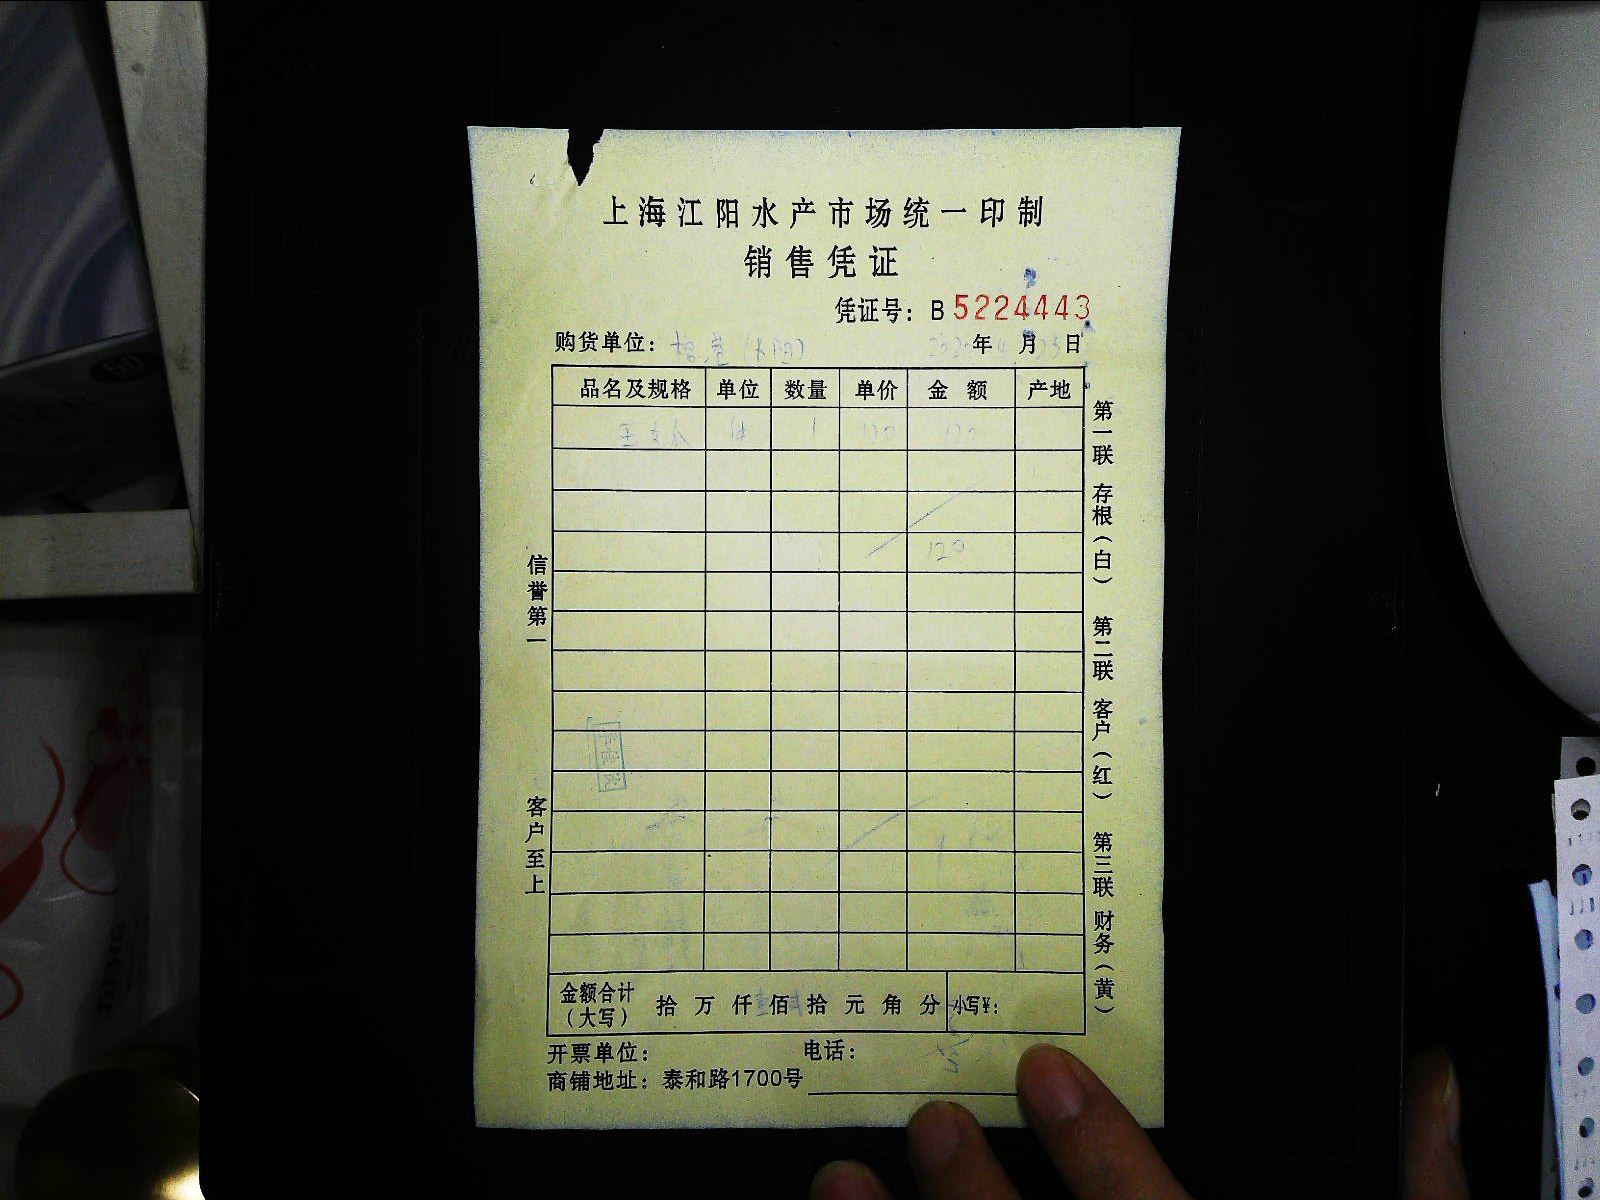 上海江阳水产市场统一印制
销售凭证
凭证号：B 5224443
购货单位： 年 月 日
品名及规格 单位 数量 单价 金额 产地
件 1 120 120
120
信誉第一
客户至上
第一联 存根（白） 第二联 客户（红） 第三联 财务（黄）
金额合计（大写） 拾 万 仟 佰 拾 元 角 分 小写¥：
开票单位： 电话：
商铺地址：泰和路1700号